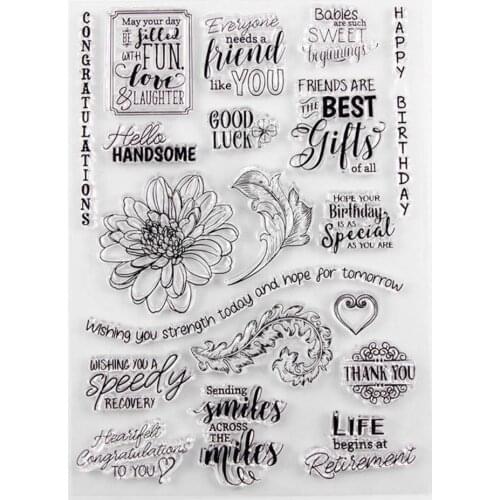 CONGRATULATIONS
May your day
BE filled
WITH FUN,
love
& LAUGHTER
Everyone
needs a
friend
like YOU
Babies
are such
SWEET
beginnings
HAPPY BIRTHDAY
Hello
HANDSOME
GOOD
LUCK
FRIENDS ARE
THE BEST
Gifts
of all
HOPE YOUR
Birthday
IS AS
Special
AS YOU ARE
Wishing you strength today and hope for tomorrow
WISHING YOU A
Speedy
RECOVERY
Sending
smiles
ACROSS
THE
miles
THANK YOU
Heartfelt
Congratulations
TO YOU
LIFE
begins at
Retirement